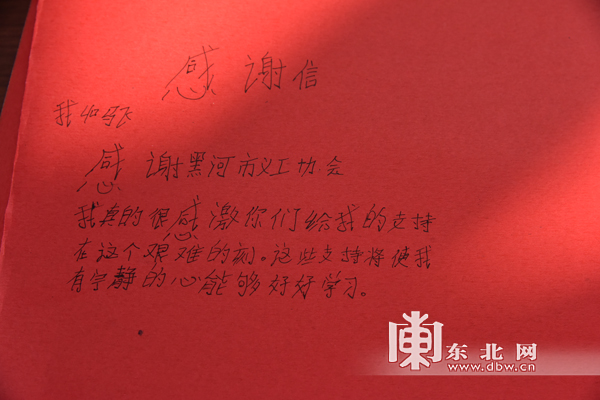 感谢信
我叫马飞
感谢黑河市义工协会
我真的很感激你们给我的支持
在这个艰难的刻。这些支持将使我
有宁静的心能够好好学习。
东北网
www.dbw.cn